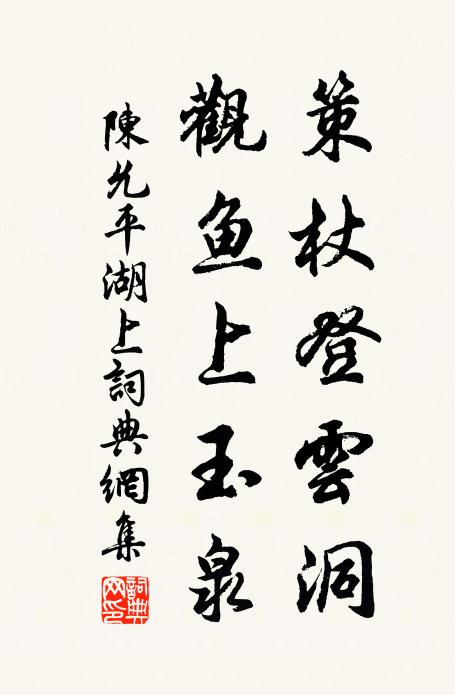 策杖登雲洞
觀鱼上玉泉
陳允平湖上詞典網集
詞典网印